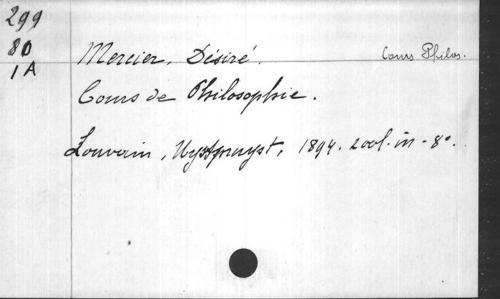 299
80
1A
Mercier, Désiré.
Cours Philos.
Cours de Philosophie.
Louvain, Uystpruyst, 1894. 2 vol. in-8°.